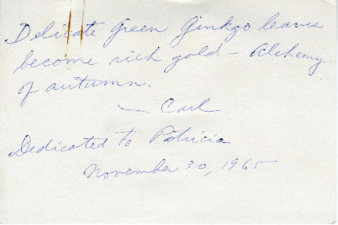 Delicate green Ginkgo leaves
become rich gold - Alchemy
of autumn.
— Carl
Dedicated to Patricia
November 30, 1965